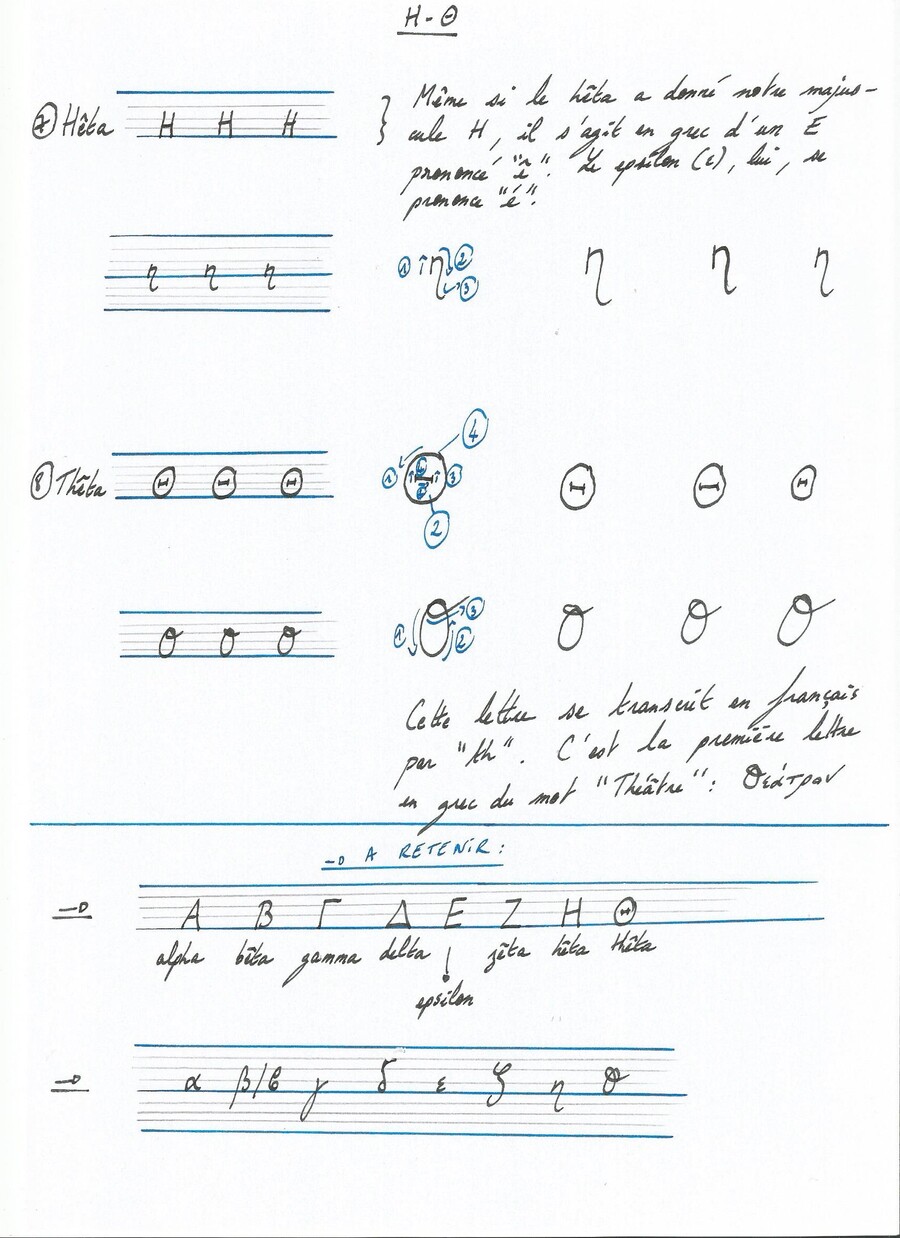 H - Θ
⑦ Hêta H H H
Même si le hêta a donné notre majus-
cule H, il s'agit en grec d'un E
prononcé "ê". Le epsilon (ε), lui, se
prononce "é".
η η η ① η ② ③ η η η
⑧ Thêta Θ Θ Θ ① Θ ③ ④ ② Θ Θ Θ
θ θ θ ① θ ② ③ θ θ θ
Cette lettre se transcrit en français
par "th". C'est la première lettre
en grec du mot "Théâtre": Θεάτρον
A RETENIR:
Α Β Γ Δ Ε Ζ Η Θ
alpha bêta gamma delta zêta hêta thêta
epsilon
α β/ϐ γ δ ε ζ η θ